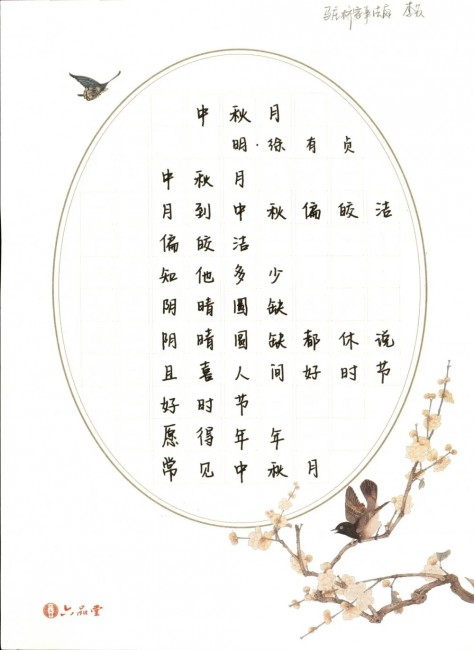 李
中秋月
明·徐有贞
中秋月
月到中秋偏皎洁
偏皎洁
知他多少
阴晴圆缺
阴晴圆缺都休说
且喜人间好时节
好时节
愿得年年
常见中秋月
六品堂